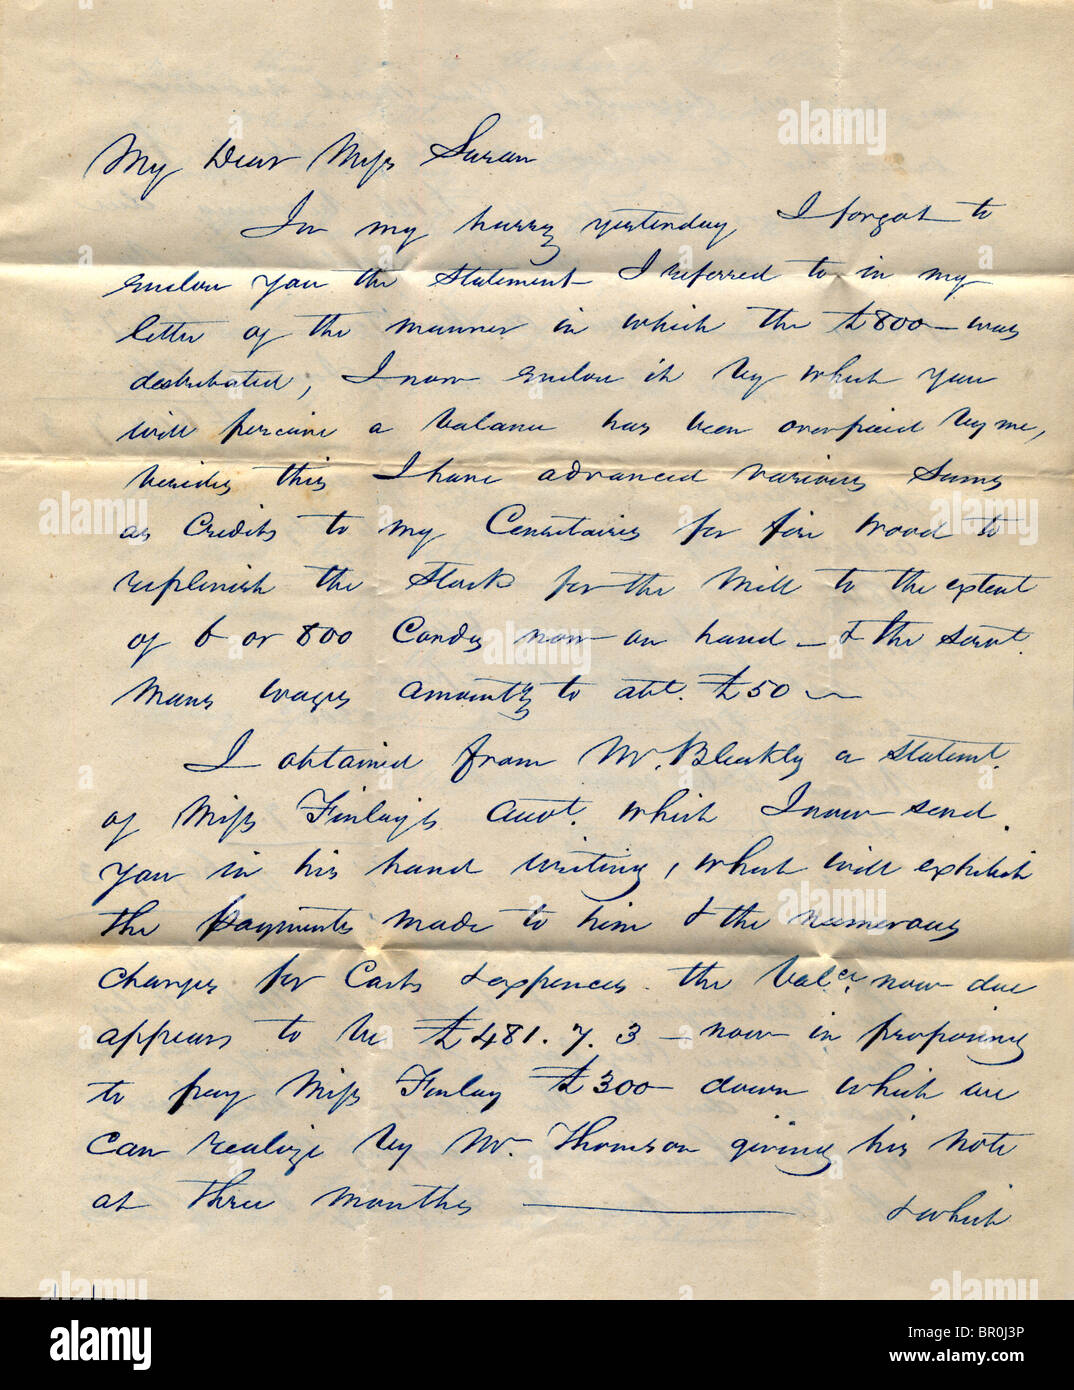 My Dear Miss Susan
In my hurry yesterday I forgot to
enclose you the Statement I referred to in my
letter of the manner in which the £800 - was
destributed; I now enclose it by which you
will perceive a balance has been overpaid by me,
besides this I have advanced various Sums
as Credits to my for fire wood to
replenish the Stock for the Mill to the extent
of 6 or 800 Cords now on hand - & the
Mans wages amountg to abt. £50 -
I obtained from Mr. Bleakly a Statemt.
of Miss Finlay's Accot. which I now send
you in his hand writing, which will exhibit
the payments made to him & the numerous
charges for Costs & expences - the Balce. now due
appears to be £481. 7. 3 - now in proposing
to pay Miss Finlay £300 - down which we
can realize by Mr. Thomson giving his Note
at three months ———— & which
alamy
alamy
Image ID: BR0J3P
www.alamy.com